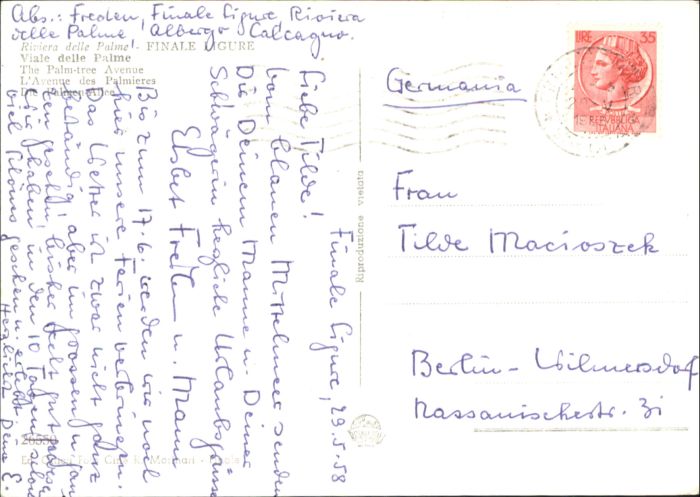 Abs.: Freden, Finale Ligure, Riviera
delle Palme, Albergo Calcagno.
Riviera delle Palme - FINALE LIGURE
Viale delle Palme
The Palm-tree Avenue
L'Avenue des Palmiers
Die Palmen-Allee
Finale Ligure, 29.5.58
Liebe Tilde!
Vom blauen Mittelmeer senden
Dir Deinem Manne u. Deiner
Schwägerin herzliche Urlaubsgrüsse
Elsbet Freden u. Mann
Bis zum 17.6. werden wir noch
hier unsere Ferien verbringen.
Das Wetter ist zwar nicht ganz
beständig, aber im grossen u. ganzen
gesehen bisher sehr gut
Wir haben in den 10 Tagen schon
viel Schönes gesehen u. erlebt.
Herzlichst Deine E.
Riproduzione vietata
26550
LIRE 35
REPVBBLICA
ITALIANA
Germania
Frau
Tilde Macioszek
Berlin-Wilmersdorf
Nassauischestr. 31